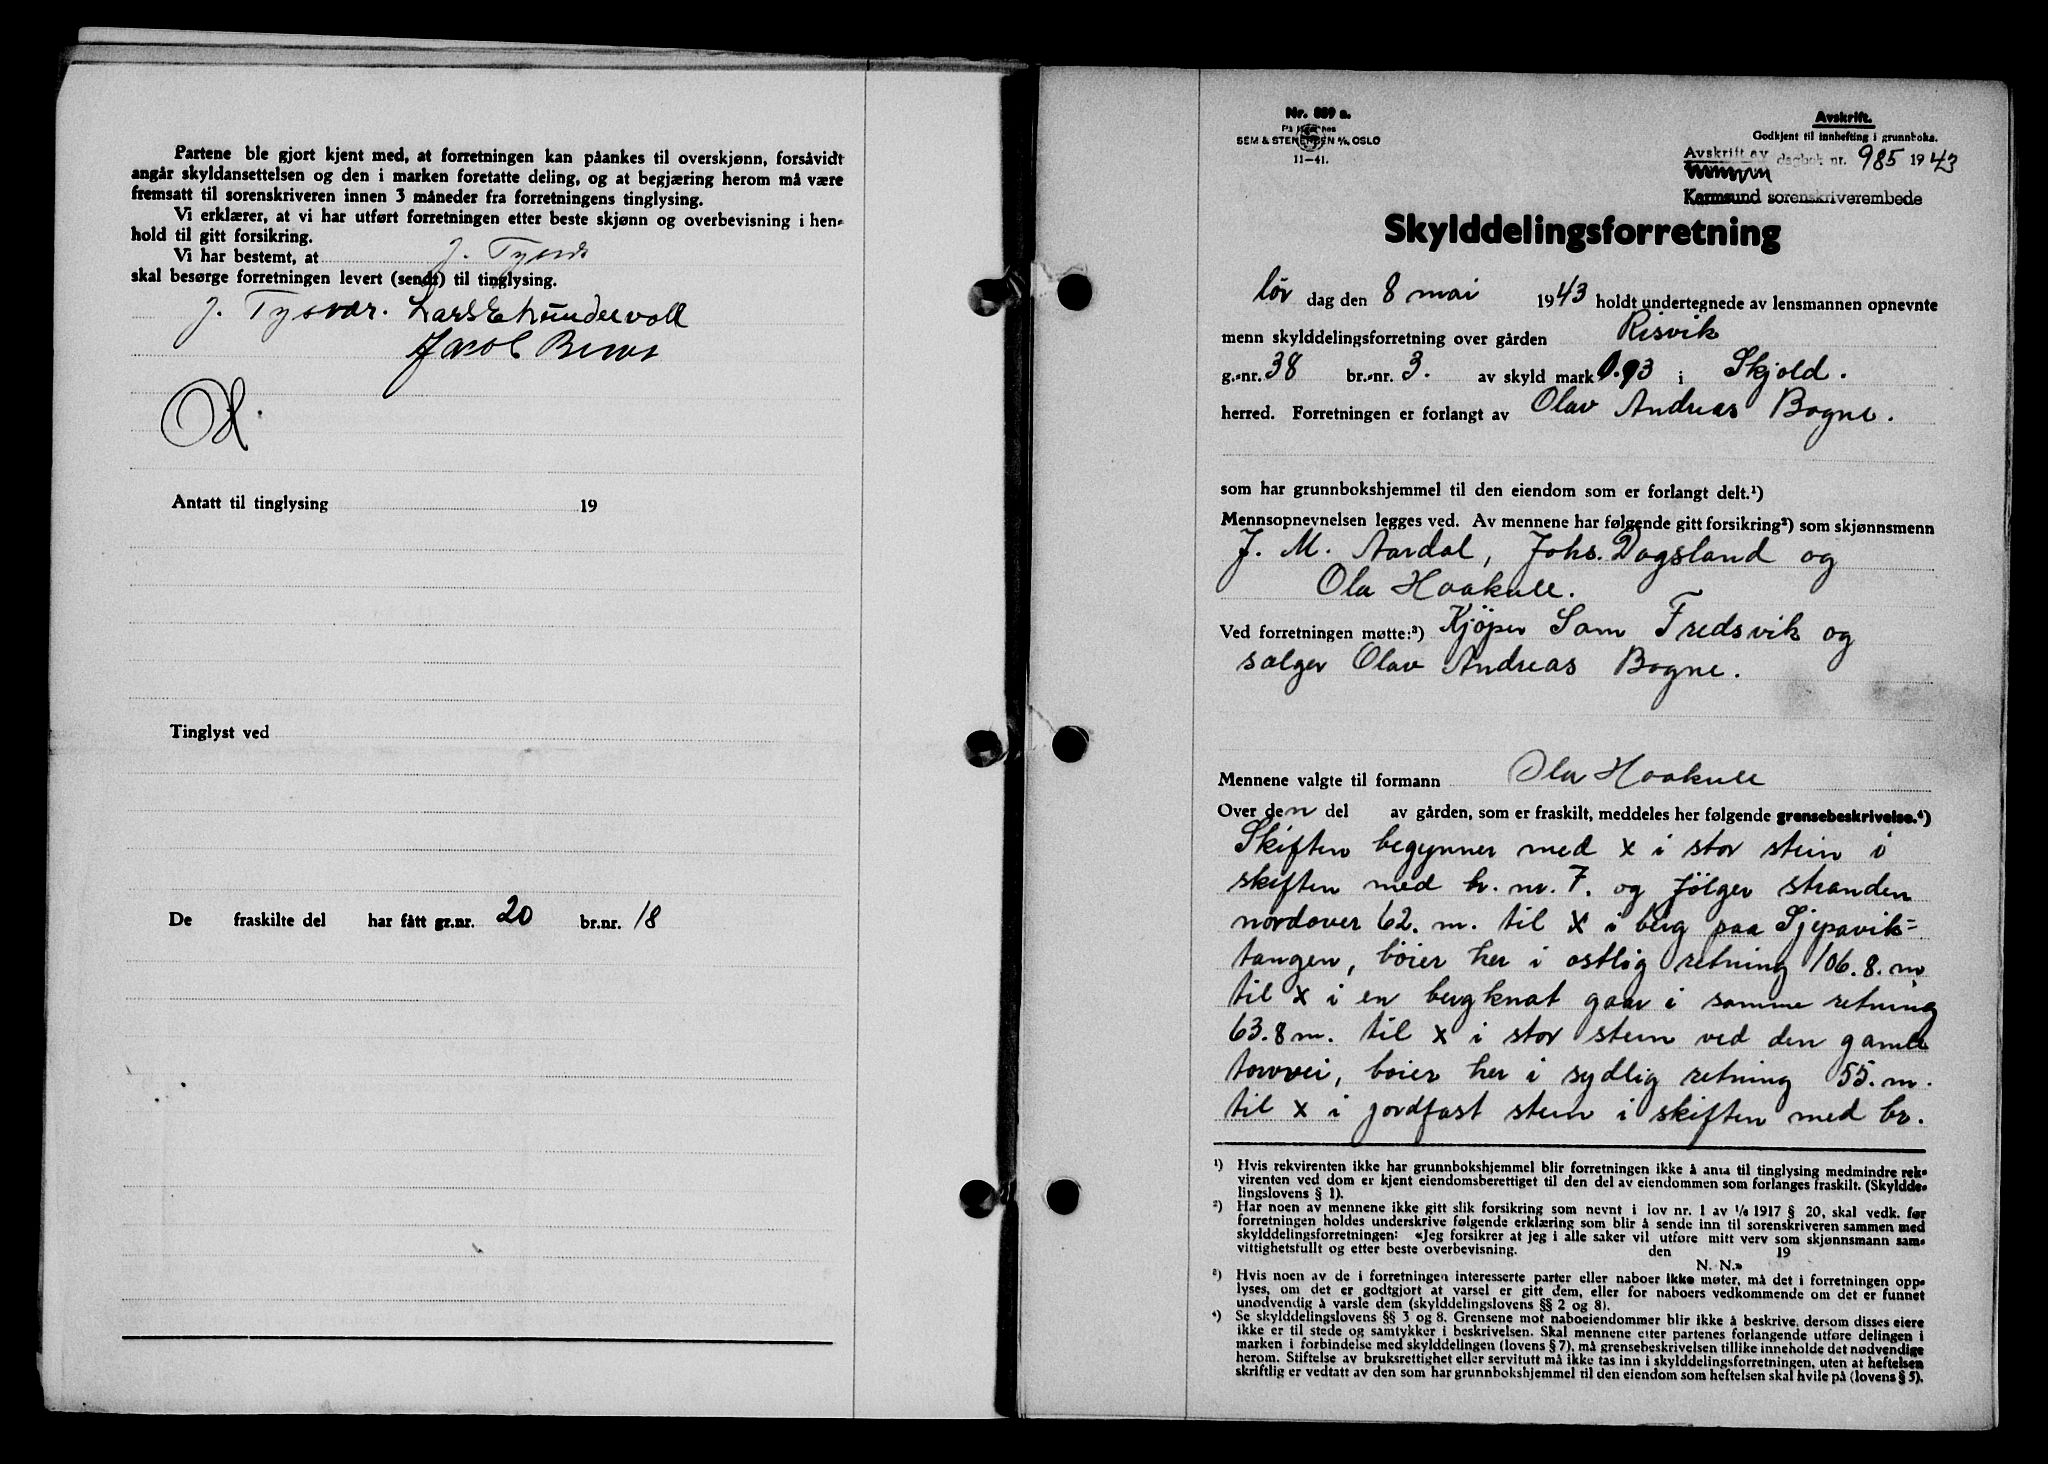 Partene ble gjort kjent med, at forretningen kan påankes til overskjønn, forsåvidt
angår skyldansettelsen og den i marken foretatte deling, og at begjæring herom må være
fremsatt til sorenskriveren innen 3 måneder fra forretningens tinglysing.
Vi erklærer, at vi har utført forretningen etter beste skjønn og overbevisning i hen-
hold til gitt forsikring.
Vi har bestemt, at J.
skal besørge forretningen levert (sendt) til tinglysing.
J. Tysvær. Lars E.
Jacob
Antatt til tinglysing 19
Tinglyst ved
De fraskilte del har fått gr.nr. 20 br.nr. 18
Nr. 809 a.
På lager hos
SEM & STENERSEN A/S, OSLO
11–41.
Avskrift.
Godkjent til innhefting i grunnboka.
Avskrift av dagbok nr. 985 1943
Karmsund sorenskriverembede
Skylddelingsforretning
lør dag den 8 mai 1943 holdt undertegnede av lensmannen opnevnte
menn skylddelingsforretning over gården Risvik
g.-nr. 38 br.-nr. 3. av skyld mark 0.93 i Skjold.
herred. Forretningen er forlangt av Olav Andreas Bogne.
som har grunnbokshjemmel til den eiendom som er forlangt delt.¹)
Mennsopnevnelsen legges ved. Av mennene har følgende gitt forsikring²) som skjønnsmenn
J. M. Aardal, Johs. Dagsland og
Ola Haakull.
Ved forretningen møtte:³) Kjøper Sam Fredsvik og
sælger Olav Andreas Bogne.
Mennene valgte til formann Ola Haakull
Over den del av gården, som er fraskilt, meddeles her følgende grensebeskrivelse.⁴)
Skiften begynner med x i stor stein i
skiften med br. nr. 7. og følger stranden
nordover 62. m. til x i berg paa Sjepavik=
tangen, bøier her i østlig retning 106.8. m
til x i en bergknat gaar i samme retning
63.8 m. til x i stor stein ved den gamle
torvvei, bøier her i sydlig retning 55. m.
til x i jordfast stein i skiften med br.
¹) Hvis rekvirenten ikke har grunnbokshjemmel blir forretningen ikke å anta til tinglysing medmindre rek-
virenten ved dom er kjent eiendomsberettiget til den del av eiendommen som forlanges fraskilt. (Skyldde-
lingslovens § 1).
²) Har noen av mennene ikke gitt slik forsikring som nevnt i lov nr. 1 av 1/6 1917 § 20, skal vedk. før
forretningen holdes underskrive følgende erklæring som blir å sende inn til sorenskriveren sammen med
skylddelingsforretningen: «Jeg forsikrer at jeg i alle saker vil utføre mitt verv som skjønnsmann sam-
vittighetsfullt og etter beste overbevisning. den 19
N. N.»
³) Hvis noen av de i forretningen interesserte parter eller naboer ikke møter, må det i forretningen opp-
lyses, om det er godtgjort at varsel er gitt dem, eller for naboers vedkommende om det er funnet
unødvendig å varsle dem (skylddelingslovens §§ 2 og 8).
⁴) Se skylddelingslovens §§ 3 og 8. Grensene mot naboeiendommer blir ikke å beskrive, dersom disses eiere
ikke er til stede og samtykker i beskrivelsen. Skal mennene etter partenes forlangende utføre delingen i
marken i forbindelse med skylddelingen (lovens § 7), må grensebeskrivelsen tillike inneholde det nødvendige
herom. Stiftelse av bruksrettighet eller servitutt må ikke tas inn i skylddelingsforretningen, uten at heftelsen
skriftlig er vedtatt av den som har grunnbokshjemmel til den eiendom som heftelsen skal hvile på (lovens § 5).